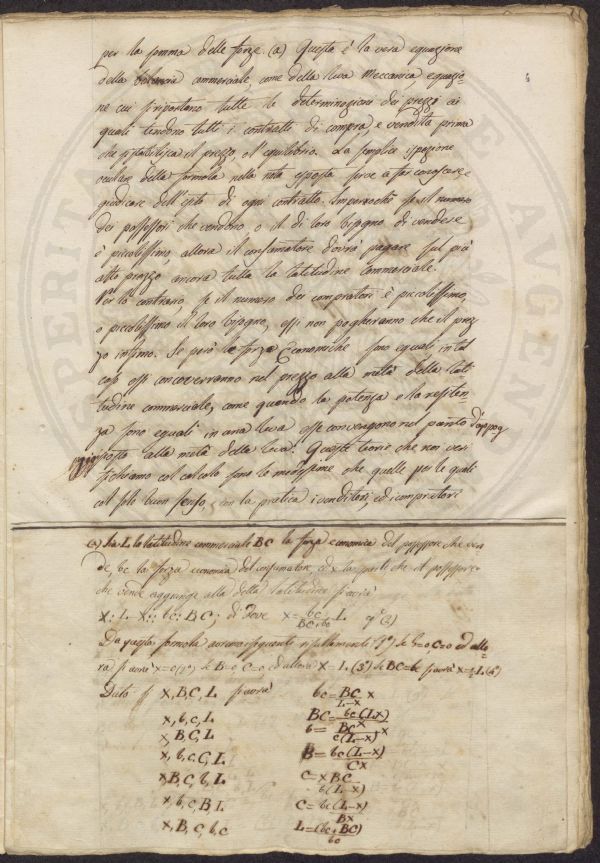 per la somma delle forze. (a) Questa è la vera equazione
della bilancia commerciale, come della leva Meccanica equazio-
ne cui si riportano tutte le determinazioni dei prezzi ai
quali tendono tutti i contratti di compra e vendita prima
che si stabilisca il prezzo, o l'equilibrio. La semplice ispezione
oculare della formola nella nota esposta serve a far conoscere e
giudicare dell'esito di ogni contratto. Imperocchè se il numero
dei possessori che vendono o il di loro bisogno di vendere
è picolissimo allora il consumatore dovrà pagare sul più
alto prezzo ancora tutta la latitudine commerciale.
Per lo contrario, se il numero dei compratori è picolissimo,
o picolissimo il loro bisogno, essi non pagheranno che il prez
zo infimo. Se però le forze Economiche sono eguali in tal
caso essi concoverranno nel prezzo alla metà della lati
tudine commerciale, come quando la potenza e la resisten
za sono eguali in una leva esse convengono nel punto d'appog
posto alla metà della leva. Queste teorie che noi veri
fichiamo col calcolo sono le medesime che quelle per le quali
col solo buon senso, con la pratica i venditori, ed i compratori
(a) Sia L la latitudine commerciale BC la forza economica del possessore che ven
de, bc la forza economica del consumatore, ed x la parte che il possessore
che vende aggiunge alla detta latitudine si avrà
x : L - x :: bc : BC ; di dove x = bc/BC+bc L
Da questa formola avremo i seguenti risultamenti (1°) se b=0, c=0 ed allo
ra si avrà x=0 (2°) se B=0 C=0 ed allora X = L (3°) se BC=bc si avrà x=½L (4°)
Dati x, B, C, L si avrà bc = BC/L-x x
x, b, c, L BC = bc(L-x)/x
x, B C, L b = BC x/c(L-x)
x, b, c C, L B = bc(L-x)/Cx
x, B C, b, L c = x BC/b(L-x)
x, b, c, B, L C = bc(L-x)/Bx
x, B, C, b, c L = (bc+BC)/bc